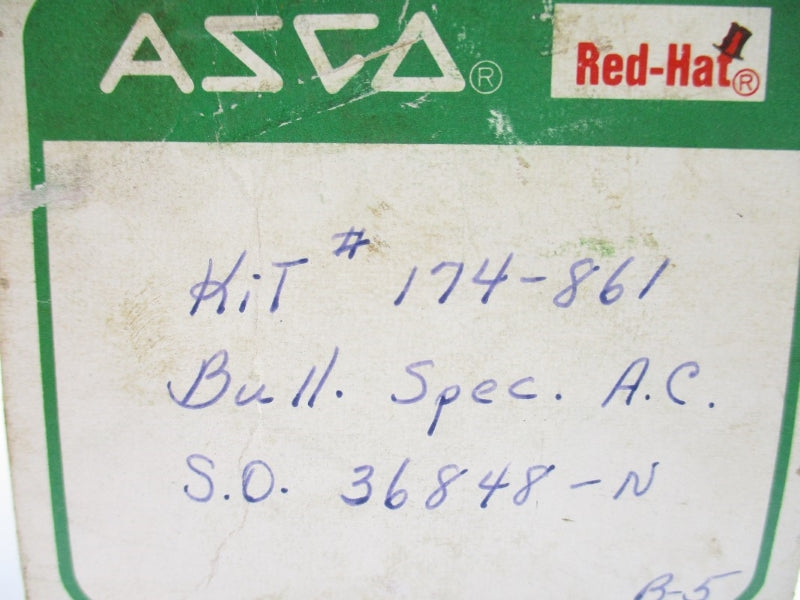 ASCO® Red-Hat®
KiT # 174-861
Bull. Spec. A.C.
S.O. 36848-N
B-5